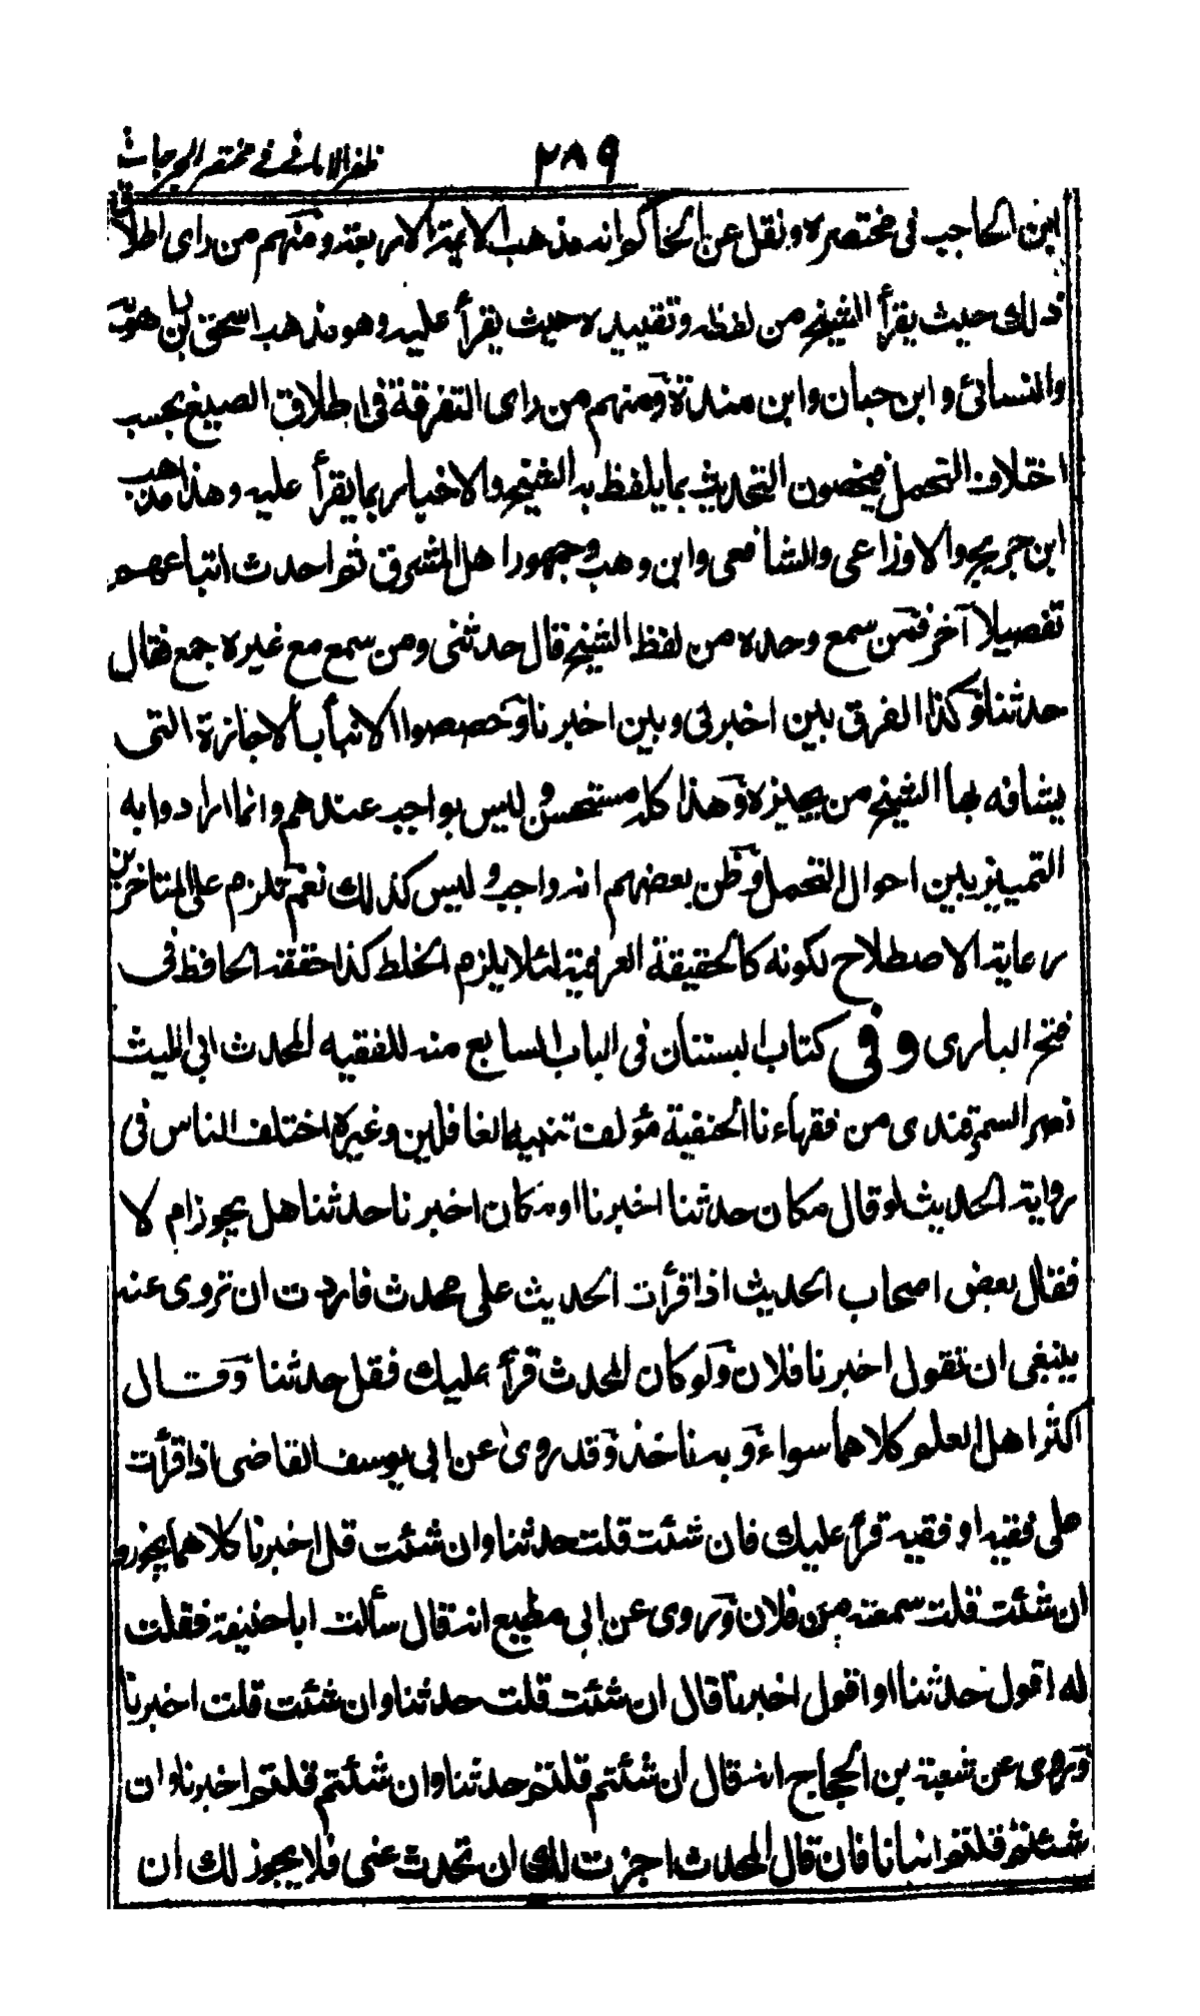 ظفر الامانى فى مختصر الجرجانى
٢٨٩
ابن الحاجب فى مختصره ونقل عن الحاكم انه مذهب الائمة الاربعة ومنهم من رأى اطلاق
ذلك حيث يقرأ الشيخ من لفظه وتقييده حيث يقرأ عليه وهو مذهب اسحق بن راهويه
والنسائى وابن حبان وابن مندة ومنهم من رأى التفرقة فى اطلاق الصيغ بحسب
اختلاف التحمل فيخصون التحديث بما يلفظ به الشيخ والاخبار بما يقرأ عليه وهذا مذهب
ابن جريج والاوزاعى والشافعى وابن وهب وجمهور اهل المشرق ثم احدث اتباعهم
تفصيلا آخر فمن سمع وحده من لفظ الشيخ قال حدثنى ومن سمع مع غيره جمع فقال
حدثنا وكذا الفرق بين اخبرنى وبين اخبرنا وخصصوا الانباء بالاجازة التى
يشافه بها الشيخ من يجيزه وهذا كله مستحسن وليس بواجب عندهم وانما ارادوا به
التمييز بين احوال التحمل وظن بعضهم انه واجب وليس كذلك نعم تلزم على المتاخرين
رعاية الاصطلاح لكونه كالحقيقة العرفية لئلا يلزم الخلط كذا حققه الحافظ فى
فتح البارى وفى كتاب البستان فى الباب السابع منه للفقيه المحدث ابى الليث
نصر السمرقندى من فقهاءنا الحنفية مؤلف تنبيه الغافلين وغيره اختلف الناس فى
رواية الحديث لو قال مكان حدثنا اخبرنا او مكان اخبرنا حدثنا هل يجوز ام لا
فقال بعض اصحاب الحديث اذا قرأت الحديث على محدث فاردت ان تروى عنه
ينبغى ان تقول اخبرنا فلان ولو كان المحدث قرأ عليك فقل حدثنا وقال
اكثر اهل العلم كلاهما سواء وبه ناخذ وقد روى عن ابى يوسف القاضى اذا قرأت
على فقيه او فقيه قرأ عليك فان شئت قلت حدثنا وان شئت قل اخبرنا كلاهما يجوز و
ان شئت قلت سمعته من فلان وروى عن ابى مطيع انه قال سألت ابا حنيفة فقلت
له اقول حدثنا او اقول اخبرنا قال ان شئت قلت حدثنا وان شئت قلت اخبرنا
وروى عن شعبة بن الحجاج انه قال ان شئتم قلتم حدثنا وان شئتم قلتم اخبرنا وان
شئتم قلتم انبأنا فان قال المحدث اجزت لك ان تحدث عنى فلا يجوز لك ان